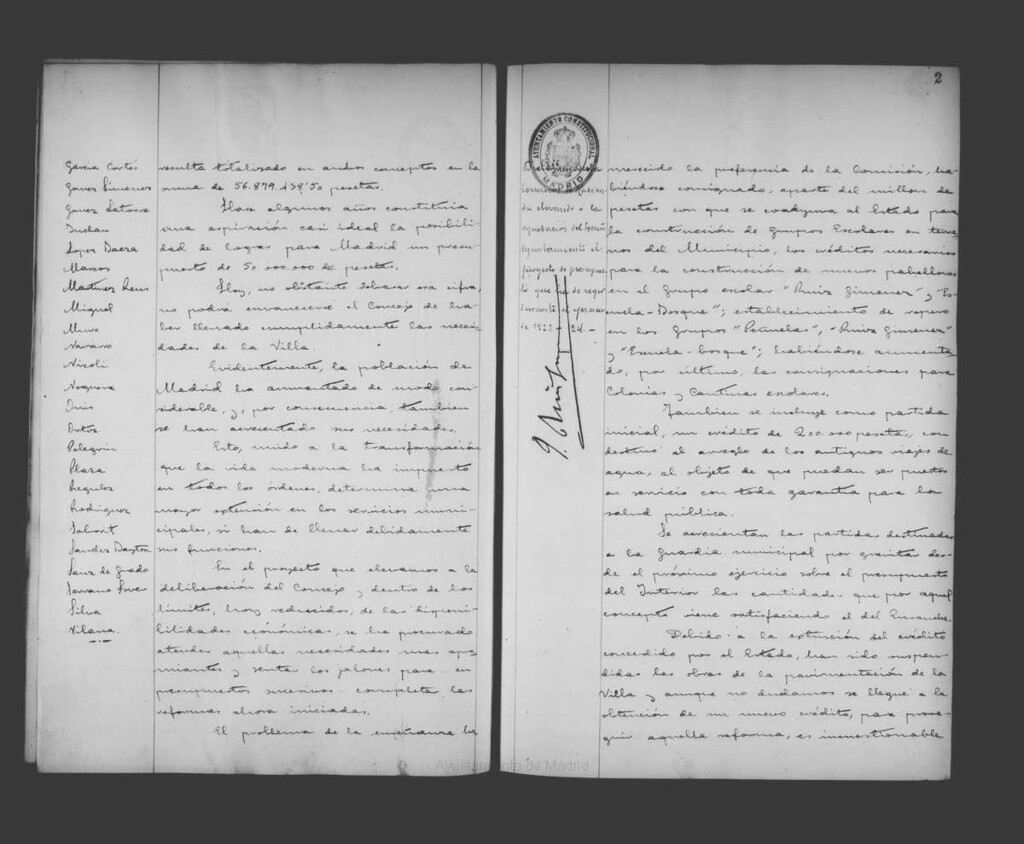 García Cortés
Gómez Latorre
López Baeza
Marcos
Martínez Reus
Miguel
Muro
Navarro
Nicoli
Noguera
Onis
Ortiz
Pelegrin
Plaza
Regulez
Rodriguez
Saborit
Sanz de Grado
Silva
Vilana.
resulta totalizado en ambos conceptos en la
suma de 56.879.438'50 pesetas.
Hace algunos años constituia
una aspiración casi ideal la posibili-
dad de lograr para Madrid un presu-
puesto de 50.000.000 de pesetas.
Hoy, no obstante rebasar esa cifra,
no podrá envanecerse el Concejo de ha-
ber llenado cumplidamente las necesi-
dades de la Villa.
Evidentemente, la población de
Madrid ha aumentado de modo con-
siderable, y, por consecuencia, tambien
se han acrecentado sus necesidades.
Esto, unido a la transformación
que la vida moderna ha impuesto
en todos los órdenes, determina una
mayor extensión en los servicios muni-
cipales, si han de llenar debidamente
sus funciones.
En el proyecto que elevamos a la
deliberación del Concejo y dentro de los
limites, hoy reducidos, de las disponi-
bilidades económicas, se ha procurado
atender aquellas necesidades mas apre-
miantes y sentar los jalones para en
presupuestos sucesivos completar las
reformas ahora iniciadas.
El problema de la enseñanza ha
2
AYUNTAMIENTO CONSTITUCIONAL
MADRID
elevando a la
aprobación del Excmo
Ayuntamiento el
proyecto de presupues-
to que ha de regir
durante el ejercicio
de 1923-24.-
merecido la preferencia de la Comisión, ha-
biéndose consignado, aparte del millon de
pesetas con que se coadyuva al Estado para
la construcción de Grupos Escolares en terre-
nos del Municipio, los créditos necesarios
para la construcción de nuevos pabellones
en el Grupo escolar "Ruiz Gimenez" y "Es-
cuela-Bosque"; establecimiento de ropero
en los Grupos "Peñuelas", "Ruiz Gimenez"
y "Escuela-bosque"; habiéndose aumenta-
do, por último, las consignaciones para
Colonias y Cantinas escolares.
Tambien se incluye como partida
inicial, un crédito de 200.000 pesetas, con
destino al arreglo de los antiguos viajes de
agua, al objeto de que puedan ser puestos
en servicio con toda garantia para la
salud pública.
Se acrecientan las partidas destinadas
a la Guardia municipal por gravitar des-
de el próximo ejercicio sobre el presupuesto
del Interior las cantidades que por aquel
concepto viene satisfaciendo el del Ensanche.
Debido a la extinción del crédito
concedido por el Estado, han sido suspen-
didas las obras de la pavimentación de la
Villa y aunque no dudamos se llegue a la
obtención de un nuevo crédito, para prose-
guir aquella reforma, es incuestionable
Ayuntamiento de Madrid